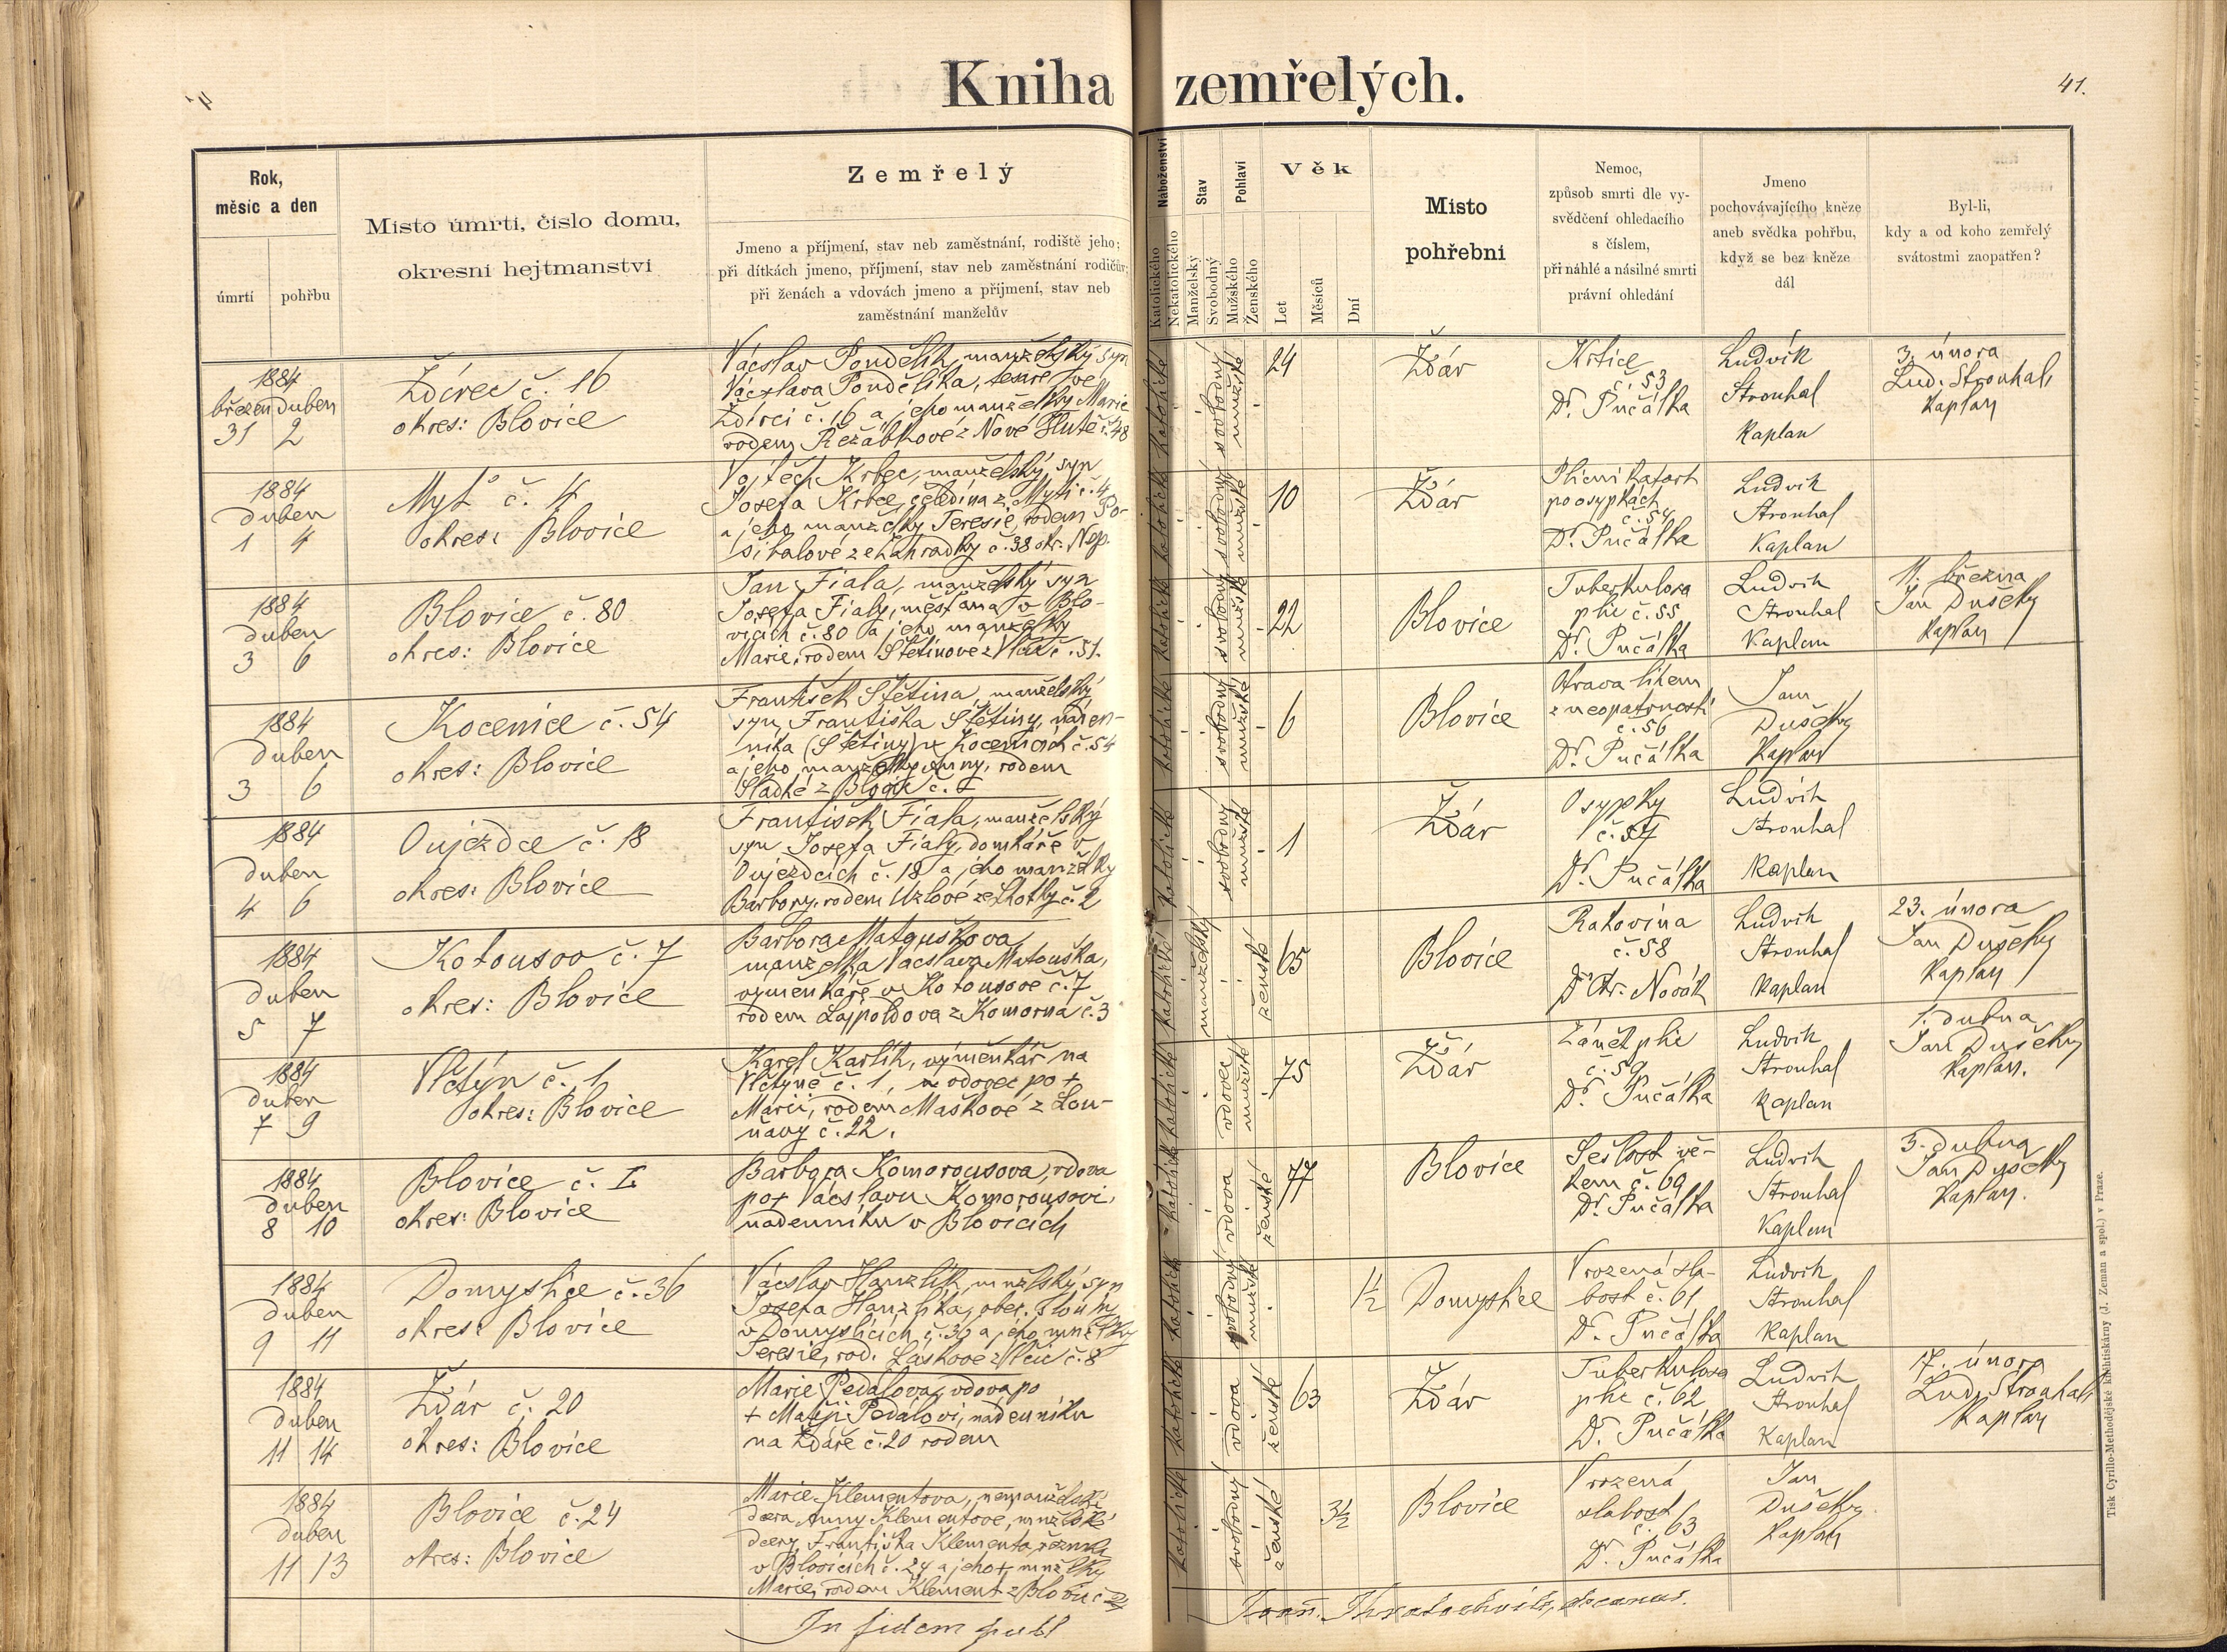 Kniha zemřelých.
41.
Rok,
měsíc a den
úmrtí
pohřbu
Místo úmrtí, číslo domu,
okresní hejtmanství
Zemřelý
Jmeno a příjmení, stav neb zaměstnání, rodiště jeho;
při dítkách jmeno, příjmení, stav neb zaměstnání rodičův;
při ženách a vdovách jmeno a příjmení, stav neb
zaměstnání manželův
Náboženství
Katolického
Nekatolického
Stav
Manželský
Svobodný
Pohlaví
Mužského
Ženského
Věk
Let
Měsíců
Dní
Místo
pohřební
Nemoc,
způsob smrti dle vy-
svědčení ohledacího
s číslem,
při náhlé a násilné smrti
právní ohledání
Jmeno
pochovávajícího kněze
aneb svědka pohřbu,
když se bez kněze
dál
Byl-li,
kdy a od koho zemřelý
svátostmi zaopatřen?
1884
březen duben
31 2
Ždírec č. 16
okres: Blovice
Vácslav Pondělík, manželský syn
Vácslava Pondělíka, tesaře ve
Ždírci č. 16 a jeho manželky Marie
rodem Řežábkové z Nové Hutě č. 48
katolické
svobodný
mužské
24
Ždár
Krtice
č. 53
Dr. Pučálka
Ludvík
Strouhal
Kaplan
3. února
Lud. Strouhal,
Kaplan
1884
duben
1 4
Mýť č. 4
okres: Blovice
Vojtěch Krbec, manželský syn
Josefa Krbce, čeledína z Mýti č. 4
a jeho manželky Teresie, rodem
č. 38 okr. Nep.
katolické
svobodný
mužské
10
Ždár
Plicní katarh
po osypkách
č. 54
Dr. Pučálka
Ludvík
Strouhal
Kaplan
1884
duben
3 6
Blovice č. 80
okres: Blovice
Jan Fiala, manželský syn
Josefa Fialy, měšťana v Blo-
vicích č. 80 a jeho manželky
Marie, rodem Štětinové z Vlčic č. 51.
katolické
svobodný
mužské
22
Blovice
Tuberkulosa
plic č. 55
Dr. Pučálka
Ludvík
Strouhal
Kaplan
11. března
Jan Dušek,
Kaplan
1884
duben
3 6
Kocenice č. 54
okres: Blovice
František Štětina, manželský
syn Františka Štětiny, náden-
níka (Štětiny) v Kocenicích č. 54
a jeho manželky Anny, rodem
Sladké z Blovic č.
katolické
svobodný
mužské
6
Blovice
Otrava lihem
z neopatrnosti
č. 56
Dr. Pučálka
Jan
Dušek,
Kaplan
1884
duben
4 6
Oujezdce č. 18
okres: Blovice
František Fiala, manželský
syn Josefa Fialy, domkáře v
Oujezdcích č. 18 a jeho manželky
Barbory, rodem Uzlové ze Lhotky č. 2
katolické
svobodný
mužské
1
Ždár
Osypky
č. 57
Dr. Pučálka
Ludvík
Strouhal
Kaplan
1884
duben
5 7
Kotousov č. 7
okres: Blovice
Barbora Matouškova,
manželka Vácslava Matouška,
výměnkáře v Kotousově č. 7
rodem Lajpoldova z Komorna č. 3
katolické
manželský
ženské
65
Blovice
Rakovina
č. 58
Dr. Otr. Novák
Ludvík
Strouhal
Kaplan
23. února
Jan Dušek,
Kaplan
1884
duben
7 9
Vlčtýn č. 1
okres: Blovice
Karel Karlík, výměnkář na
Vlčtýně č. 1, vdovec po +
Marii, rodem Maškové z Lou-
ňavy č. 22.
katolické
vdovec
mužské
75
Ždár
Zánět plic
č. 59
Dr. Pučálka
Ludvík
Strouhal
Kaplan
1. dubna
Jan Dušek,
Kaplan.
1884
duben
8 10
Blovice č. I
okres: Blovice
Barbora Komorousova, vdova
po + Vácslavu Komorousovi,
nádenníku v Blovicích
katolické
vdova
ženské
77
Blovice
Sešlost vě-
kem č. 60
Dr. Pučálka
Ludvík
Strouhal
Kaplan
3. dubna
Jan Dušek,
Kaplan.
1884
duben
9 11
Domyslice č. 36
okres: Blovice
Vácslav Hanzlík, mnžlský syn
Josefa Hanzlíka, obec. slouhy
v Domyslicích č. 36 a jeho mnželky
Teresie, rod. Láskové z Vlčic č. 8
katolické
svobodný
mužské
1½
Domyslice
Vrozená sla-
bost č. 61
Dr. Pučálka
Ludvík
Strouhal
Kaplan
1884
duben
11 14
Ždár č. 20
okres: Blovice
Marie Pedálova, vdova po
+ Matěji Pedálovi, nádenníku
na Ždáře č. 20 rodem
katolické
vdova
ženské
63
Ždár
Tuberkulosa
plic č. 62
Dr. Pučálka
Ludvík
Strouhal
Kaplan
17. února
Lud. Strouhal,
Kaplan
1884
duben
11 13
Blovice č. 24
okres: Blovice
Marie Klementova, nemanželská
dcera Anny Klementove, mnžlské
dcery Františka Klementa, řezníka
v Blovicích č. 24 a jeho + mnželky
Marie, rodem Klement z Blovic č. 24
katolické
svobodný
ženské
3½
Blovice
Vrozená
slabost
č. 63
Dr. Pučálka
Jan
Dušek,
Kaplan
In fidem publ
decanus.
Tisk Cyrillo-Methodějské knihtiskárny (J. Zeman a spol.) v Praze.